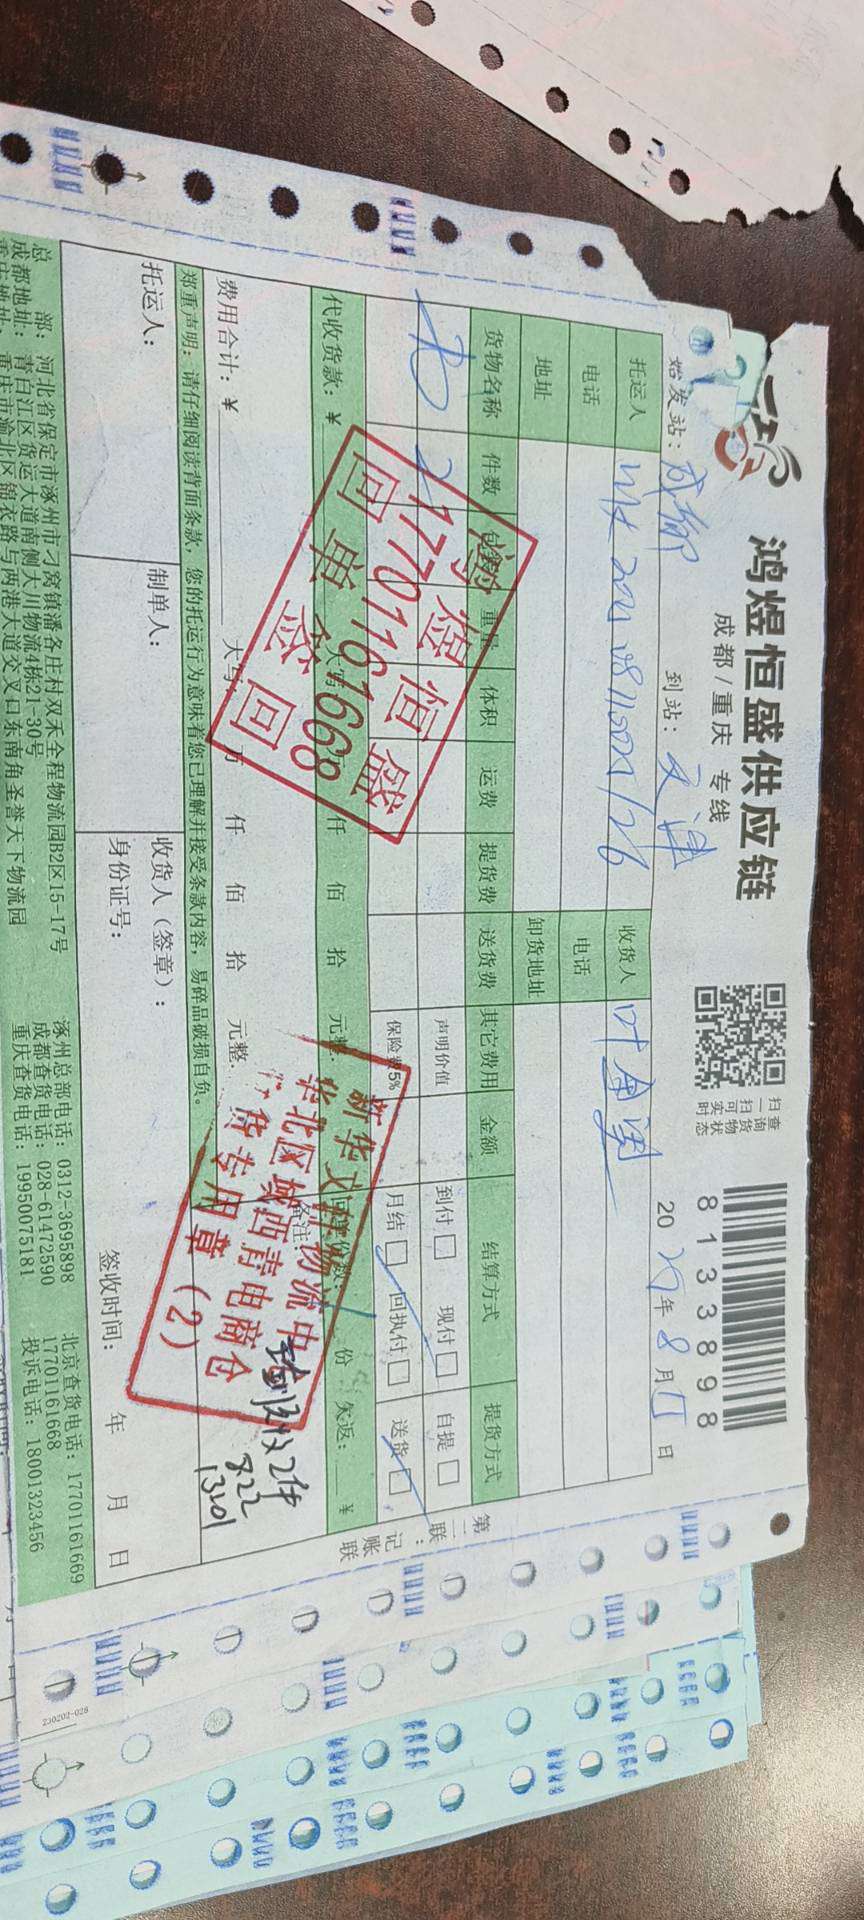 鸿煜恒盛供应链
成都/重庆 专线
扫一扫可实时
查询货物状态
81333898
始发站：成都
到站：天津
20 年8月 日
托运人
收货人
电话
电话
地址
卸货地址
货物名称 件数 包装 重量 体积 运费 提货费 送货费 其它费用 金额 结算方式 提货方式
书 2
声明价值
到付 现付
自提
保险费5%
月结 回执付
送货
代收货款：￥
大写： 万 仟 佰 拾 元整.
份 欠返： ￥
费用合计：￥
大写： 万 仟 佰 拾 元整.
备注：
郑重声明：请仔细阅读背面条款，您的托运行为意味着您已理解并接受条款内容，易碎品破损自负。
托运人：
制单人：
收货人（签章）：
身份证号：
签收时间： 年 月 日
第二联：记账联
鸿煜恒盛
17701161668
回单签回
新华文轩物流中
华北区域西青电商仓
货专用章（2）
实收2件
8.22
总部：河北省保定市涿州市刁窝镇潘各庄村双禾全程物流园B2区15-17号
涿州总部电话：0312-3695898
北京查货电话：17701161669
成都地址：青白江区货运大道南侧大川物流4栋21-30号
成都查货电话：028-61472590
17701161668
重庆地址：重庆市渝北区锦衣路与两港大道交叉口东南角圣誉天下物流园
重庆查货电话：19950075181
投诉电话：18001323456
230202-028